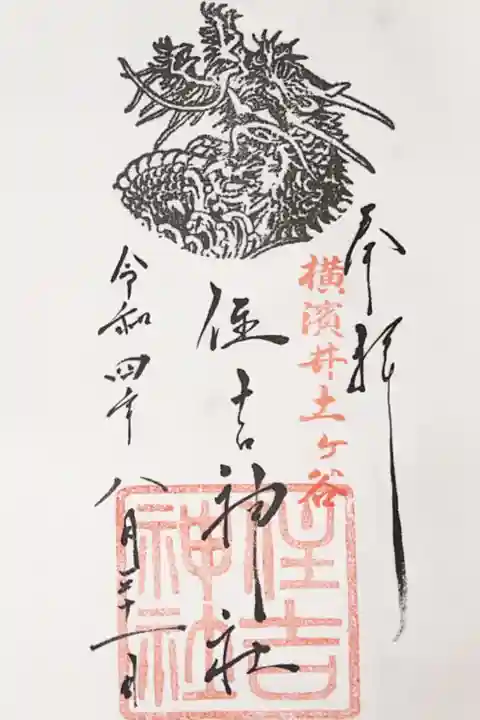 奉拝
横濱井土ヶ谷
住吉神社
住吉神社
令和四年八月二十一日